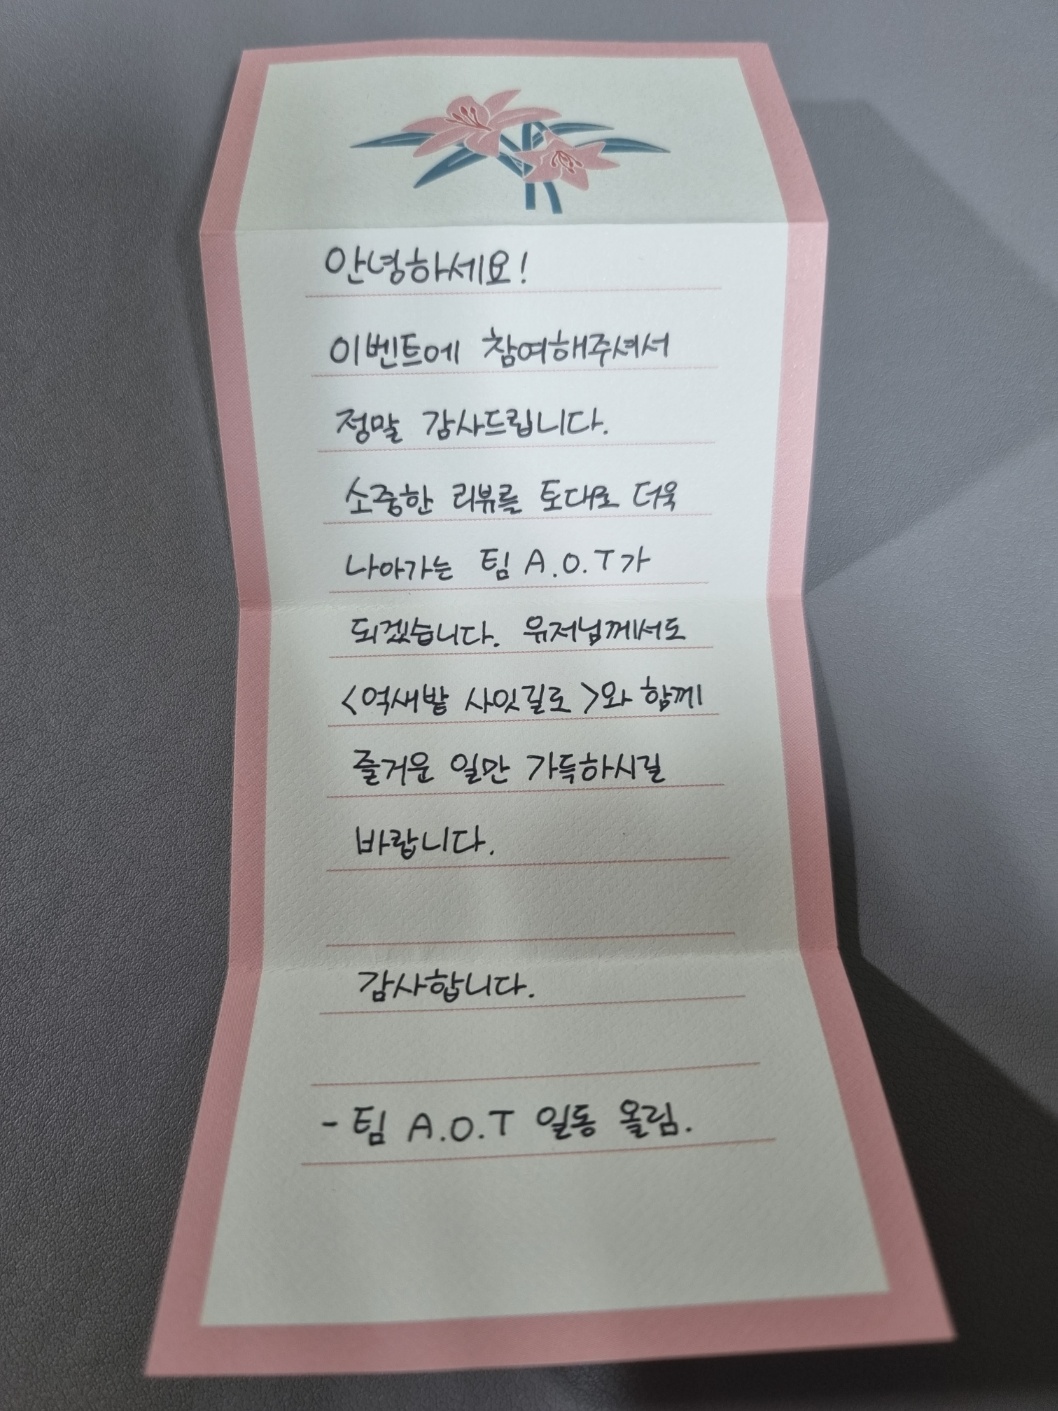 안녕하세요!
이벤트에 참여해주셔서
정말 감사드립니다.
소중한 리뷰를 토대로 더욱
나아가는 팀 A.O.T가
되겠습니다. 유저님께서도
<억새밭 사잇길로>와 함께
즐거운 일만 가득하시길
바랍니다.
감사합니다.
- 팀 A.O.T 일동 올림.